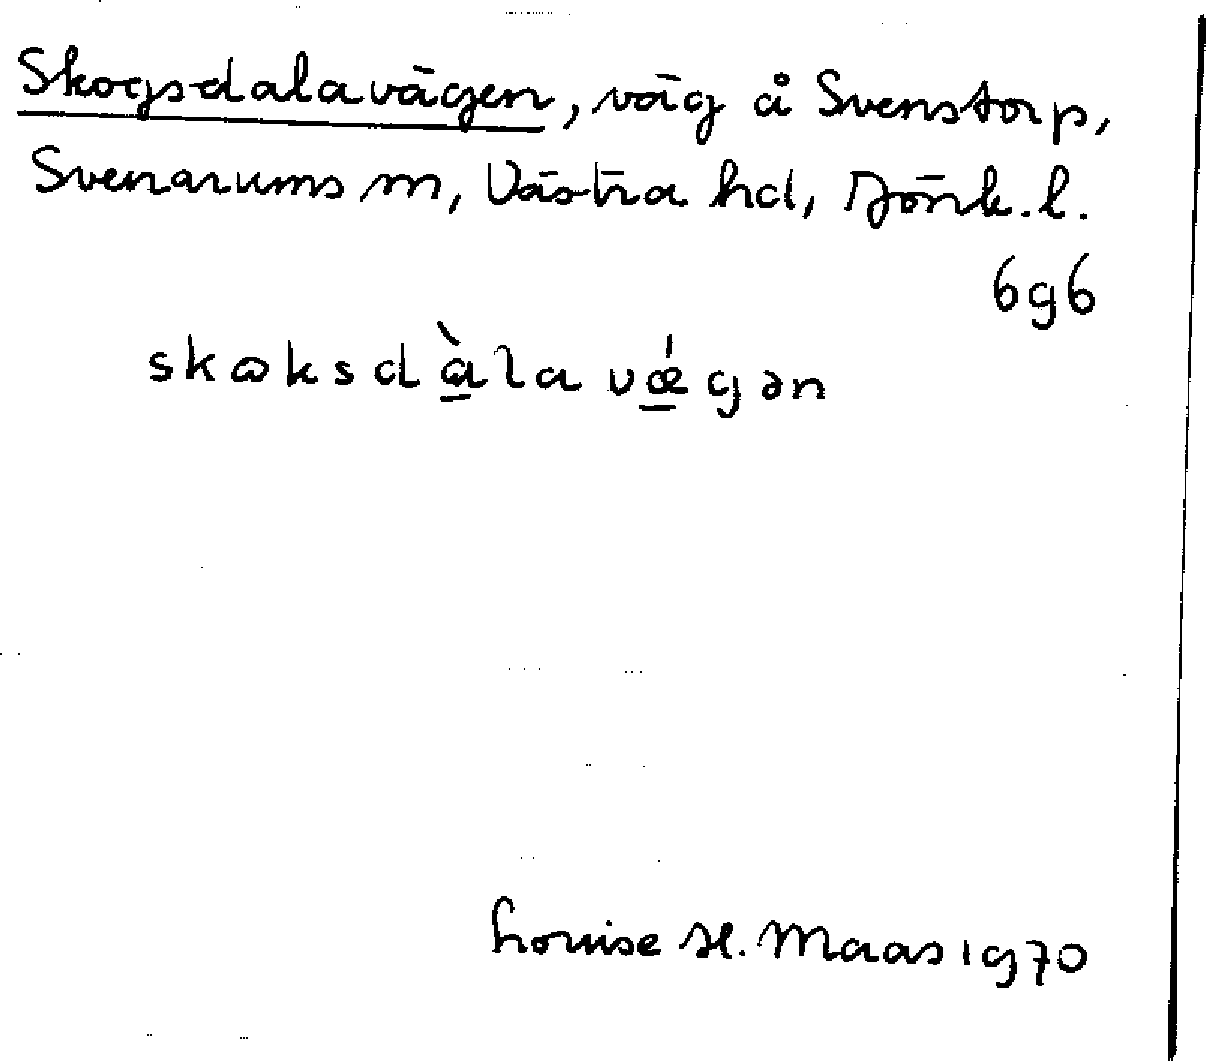 Skogsdalavägen, väg å Svenstorp,
Svenarums sn, Västra hd, Jönk. l.
6g6
skɷksdàla vǽgən
Louise H. Maas 1970